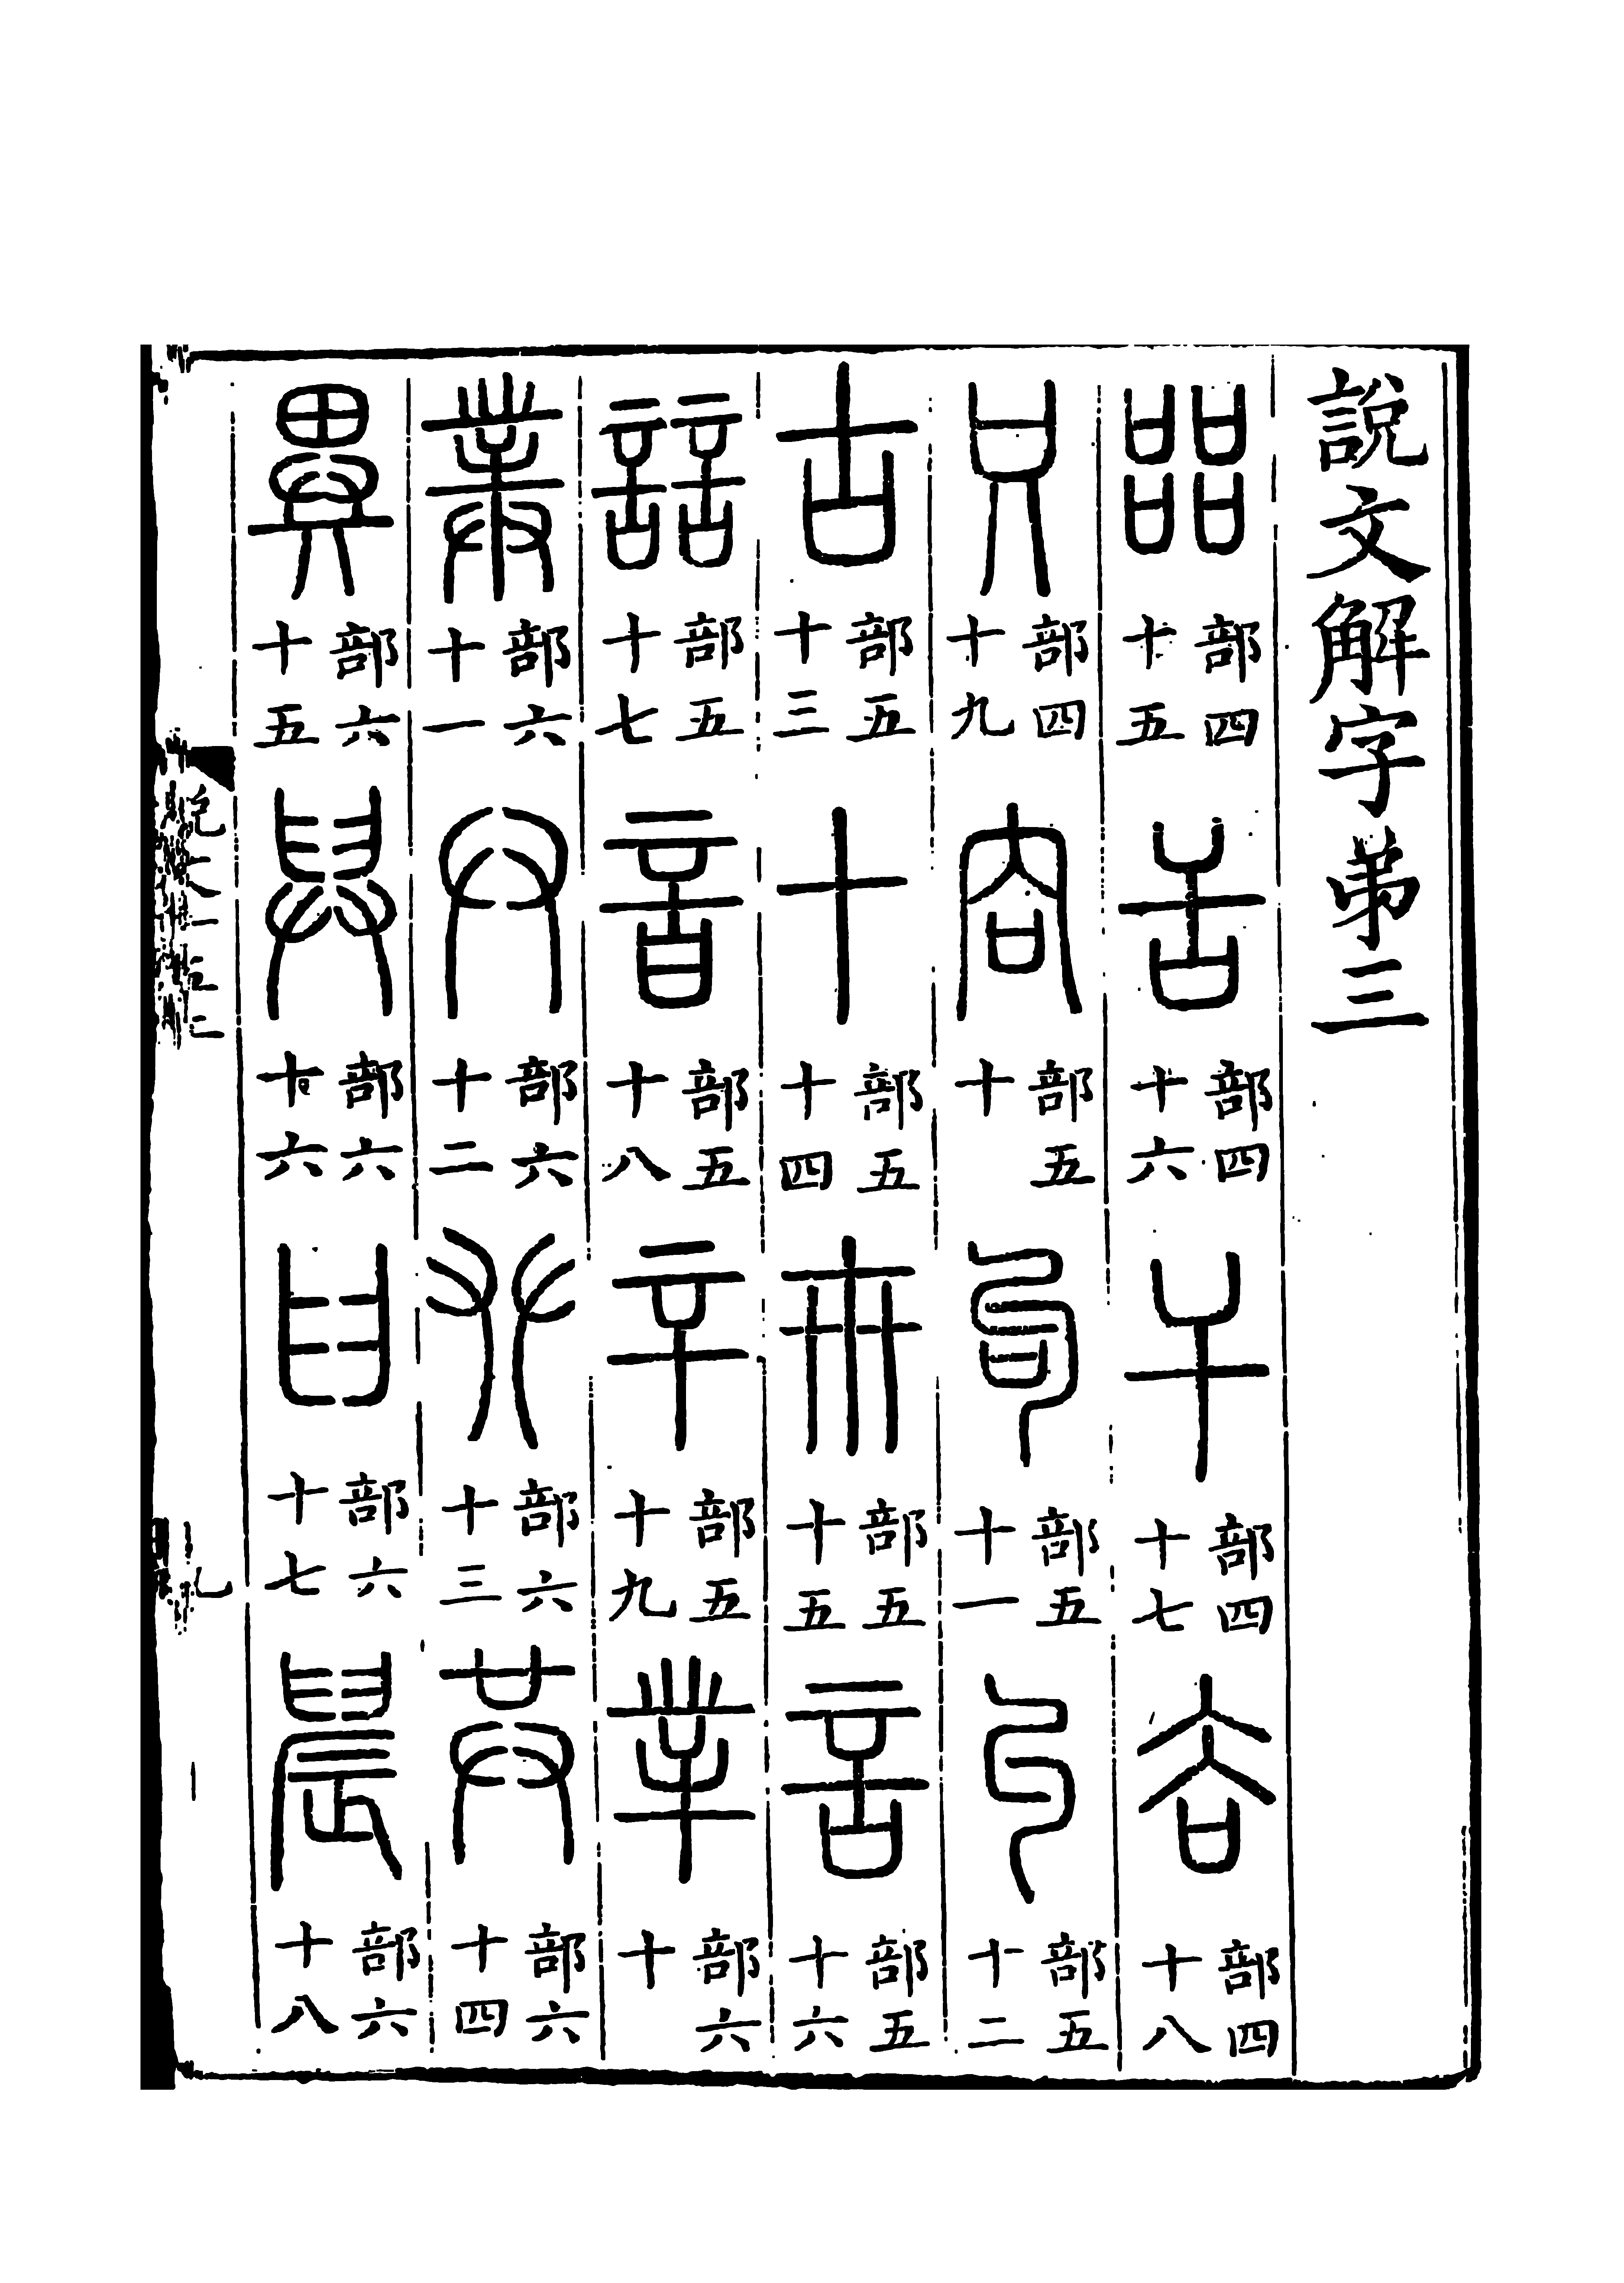 說文解字弟三
㗊部四十五 舌部四十六 干部四十七 𧮫部四十八
只部四十九 㕯部五十 句部五十一 丩部五十二
古部五十三 十部五十四 卅部五十五 言部五十六
誩部五十七 音部五十八 䇂部五十九 丵部六十
菐部六十一 廾部六十二 𠬜部六十三 共部六十四
異部六十五 舁部六十六 𦥑部六十七 䢅部六十八